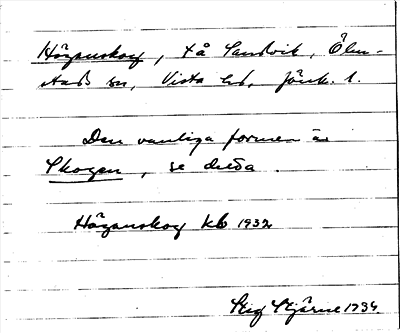 Höganskog, på Sandvik, Ölm-
stad sn, Vista hd, Jönk. l.
Den vanliga formen är
Skogen, se detta.
Höganskog kb 1932
Stig Stjärne 1934.